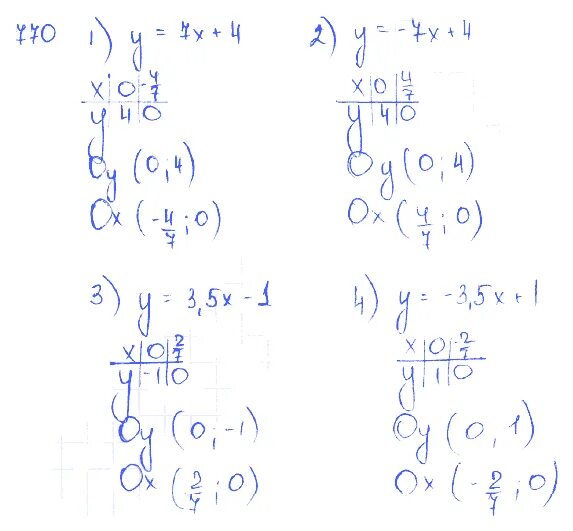 770 1) y = 7x + 4
x 0 -4/7
y 4 0
Oy (0 ; 4)
Ox (-4/7 ; 0)
2) y = -7x + 4
x 0 4/7
y 4 0
Oy (0 ; 4)
Ox (4/7 ; 0)
3) y = 3,5x - 1
x 0 2/7
y -1 0
Oy (0 ; -1)
Ox (2/7 ; 0)
4) y = -3,5x + 1
x 0 -2/7
y 1 0
Oy (0 , 1)
Ox (-2/7 ; 0)